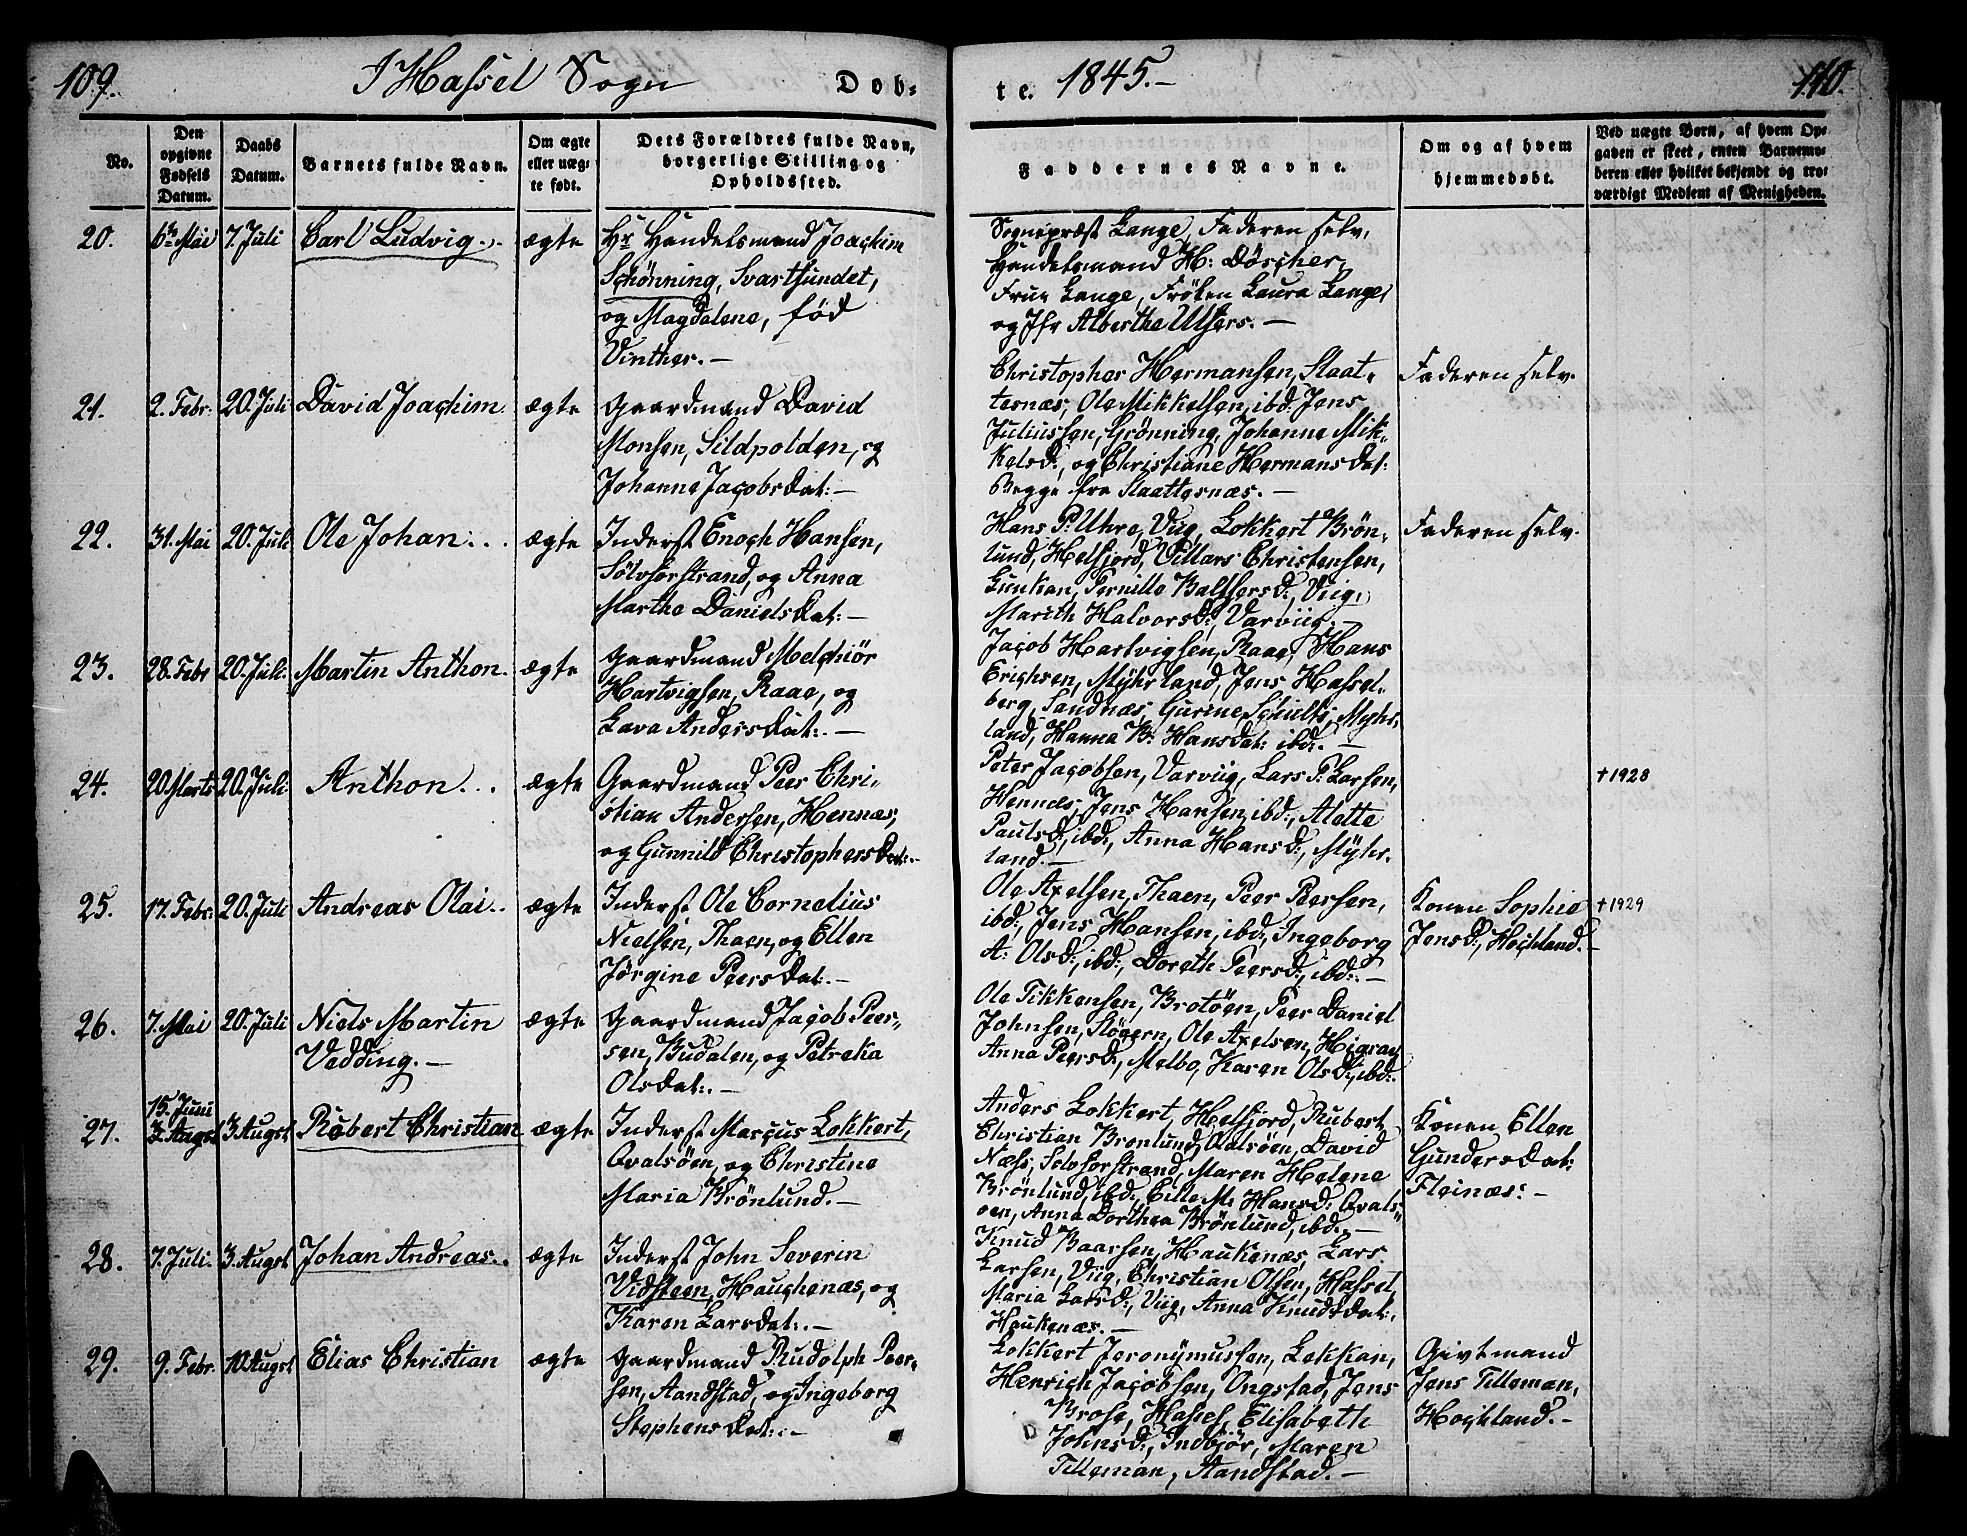 109.
I Hassel Sogn
Døb=
te.
1845.-
110.
No.
Den opgivne Fødsels Datum.
Daabs Datum.
Barnets fulde Navn.
Om ægte eller uægte født.
Dets Forældres fulde Navn, borgerlige Stilling og Opholdssted.
Faddernes Navne.
Om og af hvem hjemmedøbt.
Ved uægte Børn, af hvem Op=
gaven er skeet, enten Barnemo=
deren eller hvilket bekjendt og tro=
værdigt Medlem af Menigheden.
20.
6te Mai
7. Juli
Carl Ludvig.
ægte
Hr Handelsmand Joachim
Schønning, Svartsundet,
og Magdalene, fød
Vinther.-
Sognepræst Lange, Faderen selv,
Handelsmand H: Døscher,
Frue Lange, Frøken Laura Lange,
og Jfr Alberthe
21.
2. Febr:
20. Juli
David Joachim.
ægte
Gaardmand David
Monsen, Sildpolden, og
Johanne Jacobsdat:-
Christopher Hermansen, Slaat-
ternæs, Ole Mikkelsen, ibd: Jens
Juliussen, Grønning, Johanne Mik-
kelsd:, og Christiane Hermansdat:
Begge fra Slaatternæs.-
Faderen selv.
22.
31. Mai
20. Juli
Ole Johan...
ægte
Inderst Enoch Hansen,
Sølvforstrand, og Anna
Marthe Danielsdat:-
Hans P: Uhre, Viig, Lokkert Brøn-
lund, Helfjord, Pillars Christensen,
Lunkan, Pernille Baltsersd:, Viig,
Marith Halvorsd:, Varviig.-
Faderen selv.
23.
28. Febr
20. Juli.
Martin Anthon.
ægte
Gaardmand Melchiør
Hartvigsen, Raae, og
Lava Andersdat:.-
Jacob Hartvigsen, Raae, Hans
Erichsen, Myhrland, Jens Hassel-
berg, Sandnæs, Gurine Schults, Myhr-
land, Hanna B: Hansdat: ibd:.-
24.
20. Marts
20. Juli.
Anthon...
ægte
Gaardmand Peer Chri-
stian Andersen, Hennæs,
og Gunnild Christophersdat:.-
Peter Jacobsen, Varviig, Lars P: Larsen,
Hennæs, Jens Hansen, ibd:, Alette
Paulsd:, ibd:, Anna Hansd:, Myhr-
land.-
†1928
25.
17. Febr:
20. Juli
Andreas Olai..
ægte
Inderst Ole Cornelius
Nielsen, Thaen, og Ellen
Jørgine Peersdat:.-
Ole Axelsen, Thaen, Peer Peersen,
ibd:, Jens Hansen, ibd:, Ingeborg
A: Olsd:, ibd:, Doreth Peersd:, ibd:.-
Konen Sophie
Jensd:, Hochland.-
†1929
26.
7. Mai
20. Juli
Niels Martin
Vedding.-
ægte
Gaardmand Jacob Peer-
sen, Budalen, og Petreka
Olsdat:.-
Ole Tikkensen, Brotøen, Peer Daniel
Johnsen, Støvern, Ole Axelsen, Higrav,
Anna Peersd:, Melbo, Karen Olsd:, ibd:.
27.
15. Juni
3. Augst
3. Augst
Robert Christian
ægte
Inderst Marcus Lokkert,
Qvalsøen, og Christine
Maria Brönlund.-
Anders Lokkert, Helfjord, Rubert
Christian Brønlund, Qvalsøen, David
Næss, Selvforstrand, Maren Helene
Brönlund, ibd:, Cille M: Hansd: Qvals-
øen, Anna Dorthea Brönlund, ibd:.-
Konen Ellen
Gundersdat:
Fleinæs:-
28.
7. Juli.
3. Augst
Johan Andreas..
ægte
Inderst John Severin
Vidsteen, Hauchenæs, og
Karen Larsdat:.-
Knud Baarsen, Haukenæs, Lars
Larsen, Viig, Christian Olsen, Hassel,
Maria Larsd:, Viig, Anna Knudsdat:
Haukenæs.-
29.
9. Febr.
10. Augst
Elias Christian
ægte
Gaardmand Rudolph Peer-
sen, Aandstad, og Ingeborg
Stephensdat:.-
Lokkert Jeronymussen, Lekkan,
Henrich Jacobsen, Ongstad, Jens
Brose, Hassel, Elisabeth
Johnsd:, Indbjør, Maren
Tilleman, Aandstad.-
Givtmand
Jens Tilleman,
Hochland.-